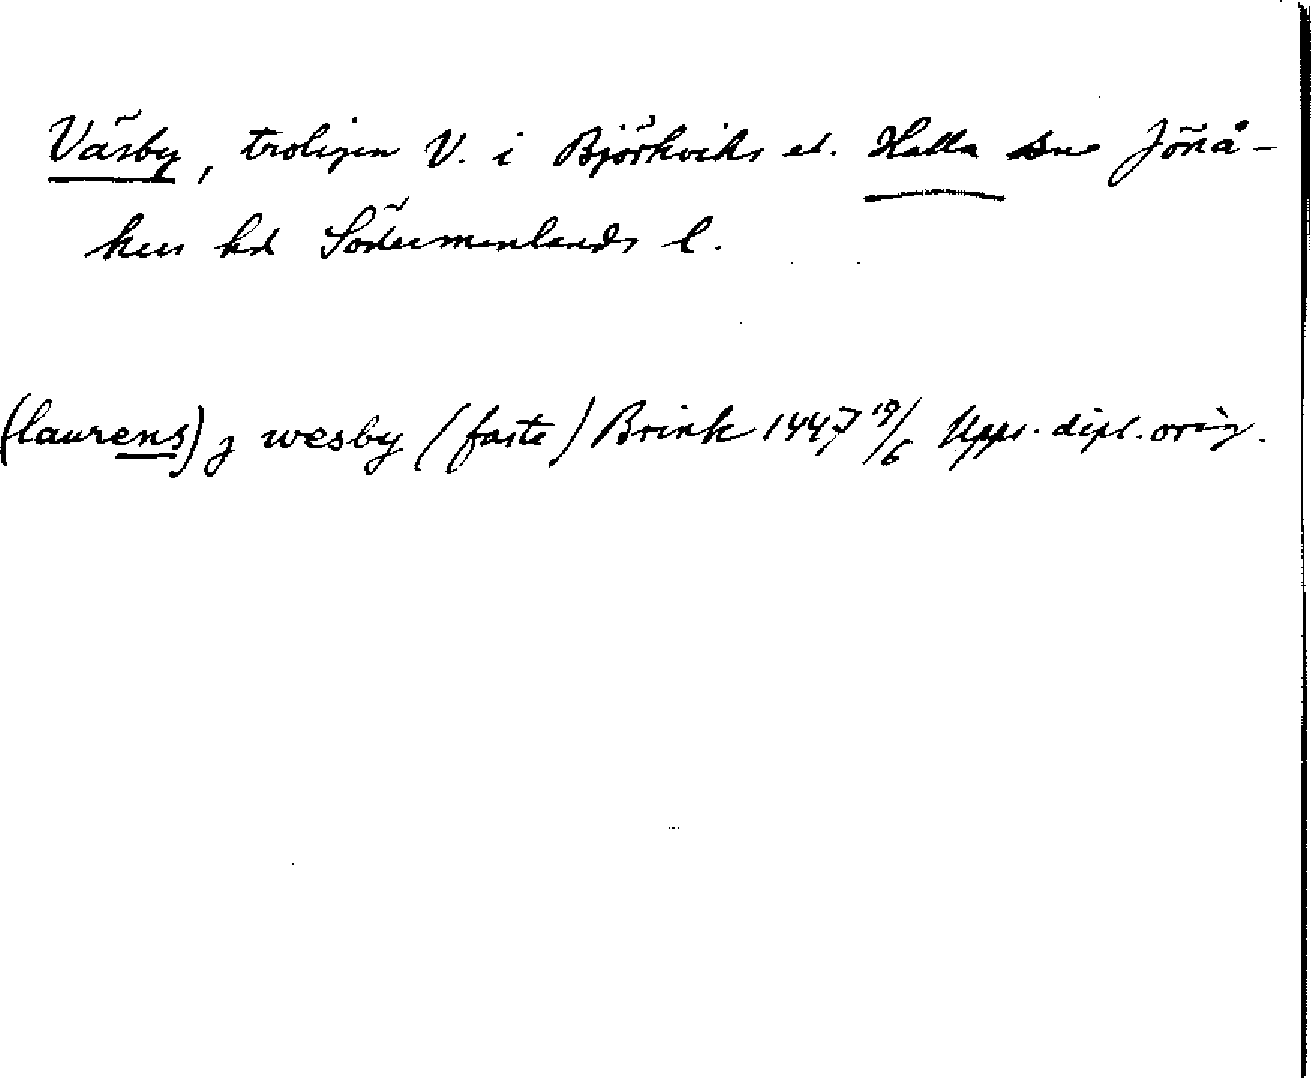 Väsby, troligen V. i Björkviks el. Halla sns Jönå-
kers hd Södermanlands l.
(laurens) j wesby (faste) Brink 1447 19/6 Upps. dipl. orig.